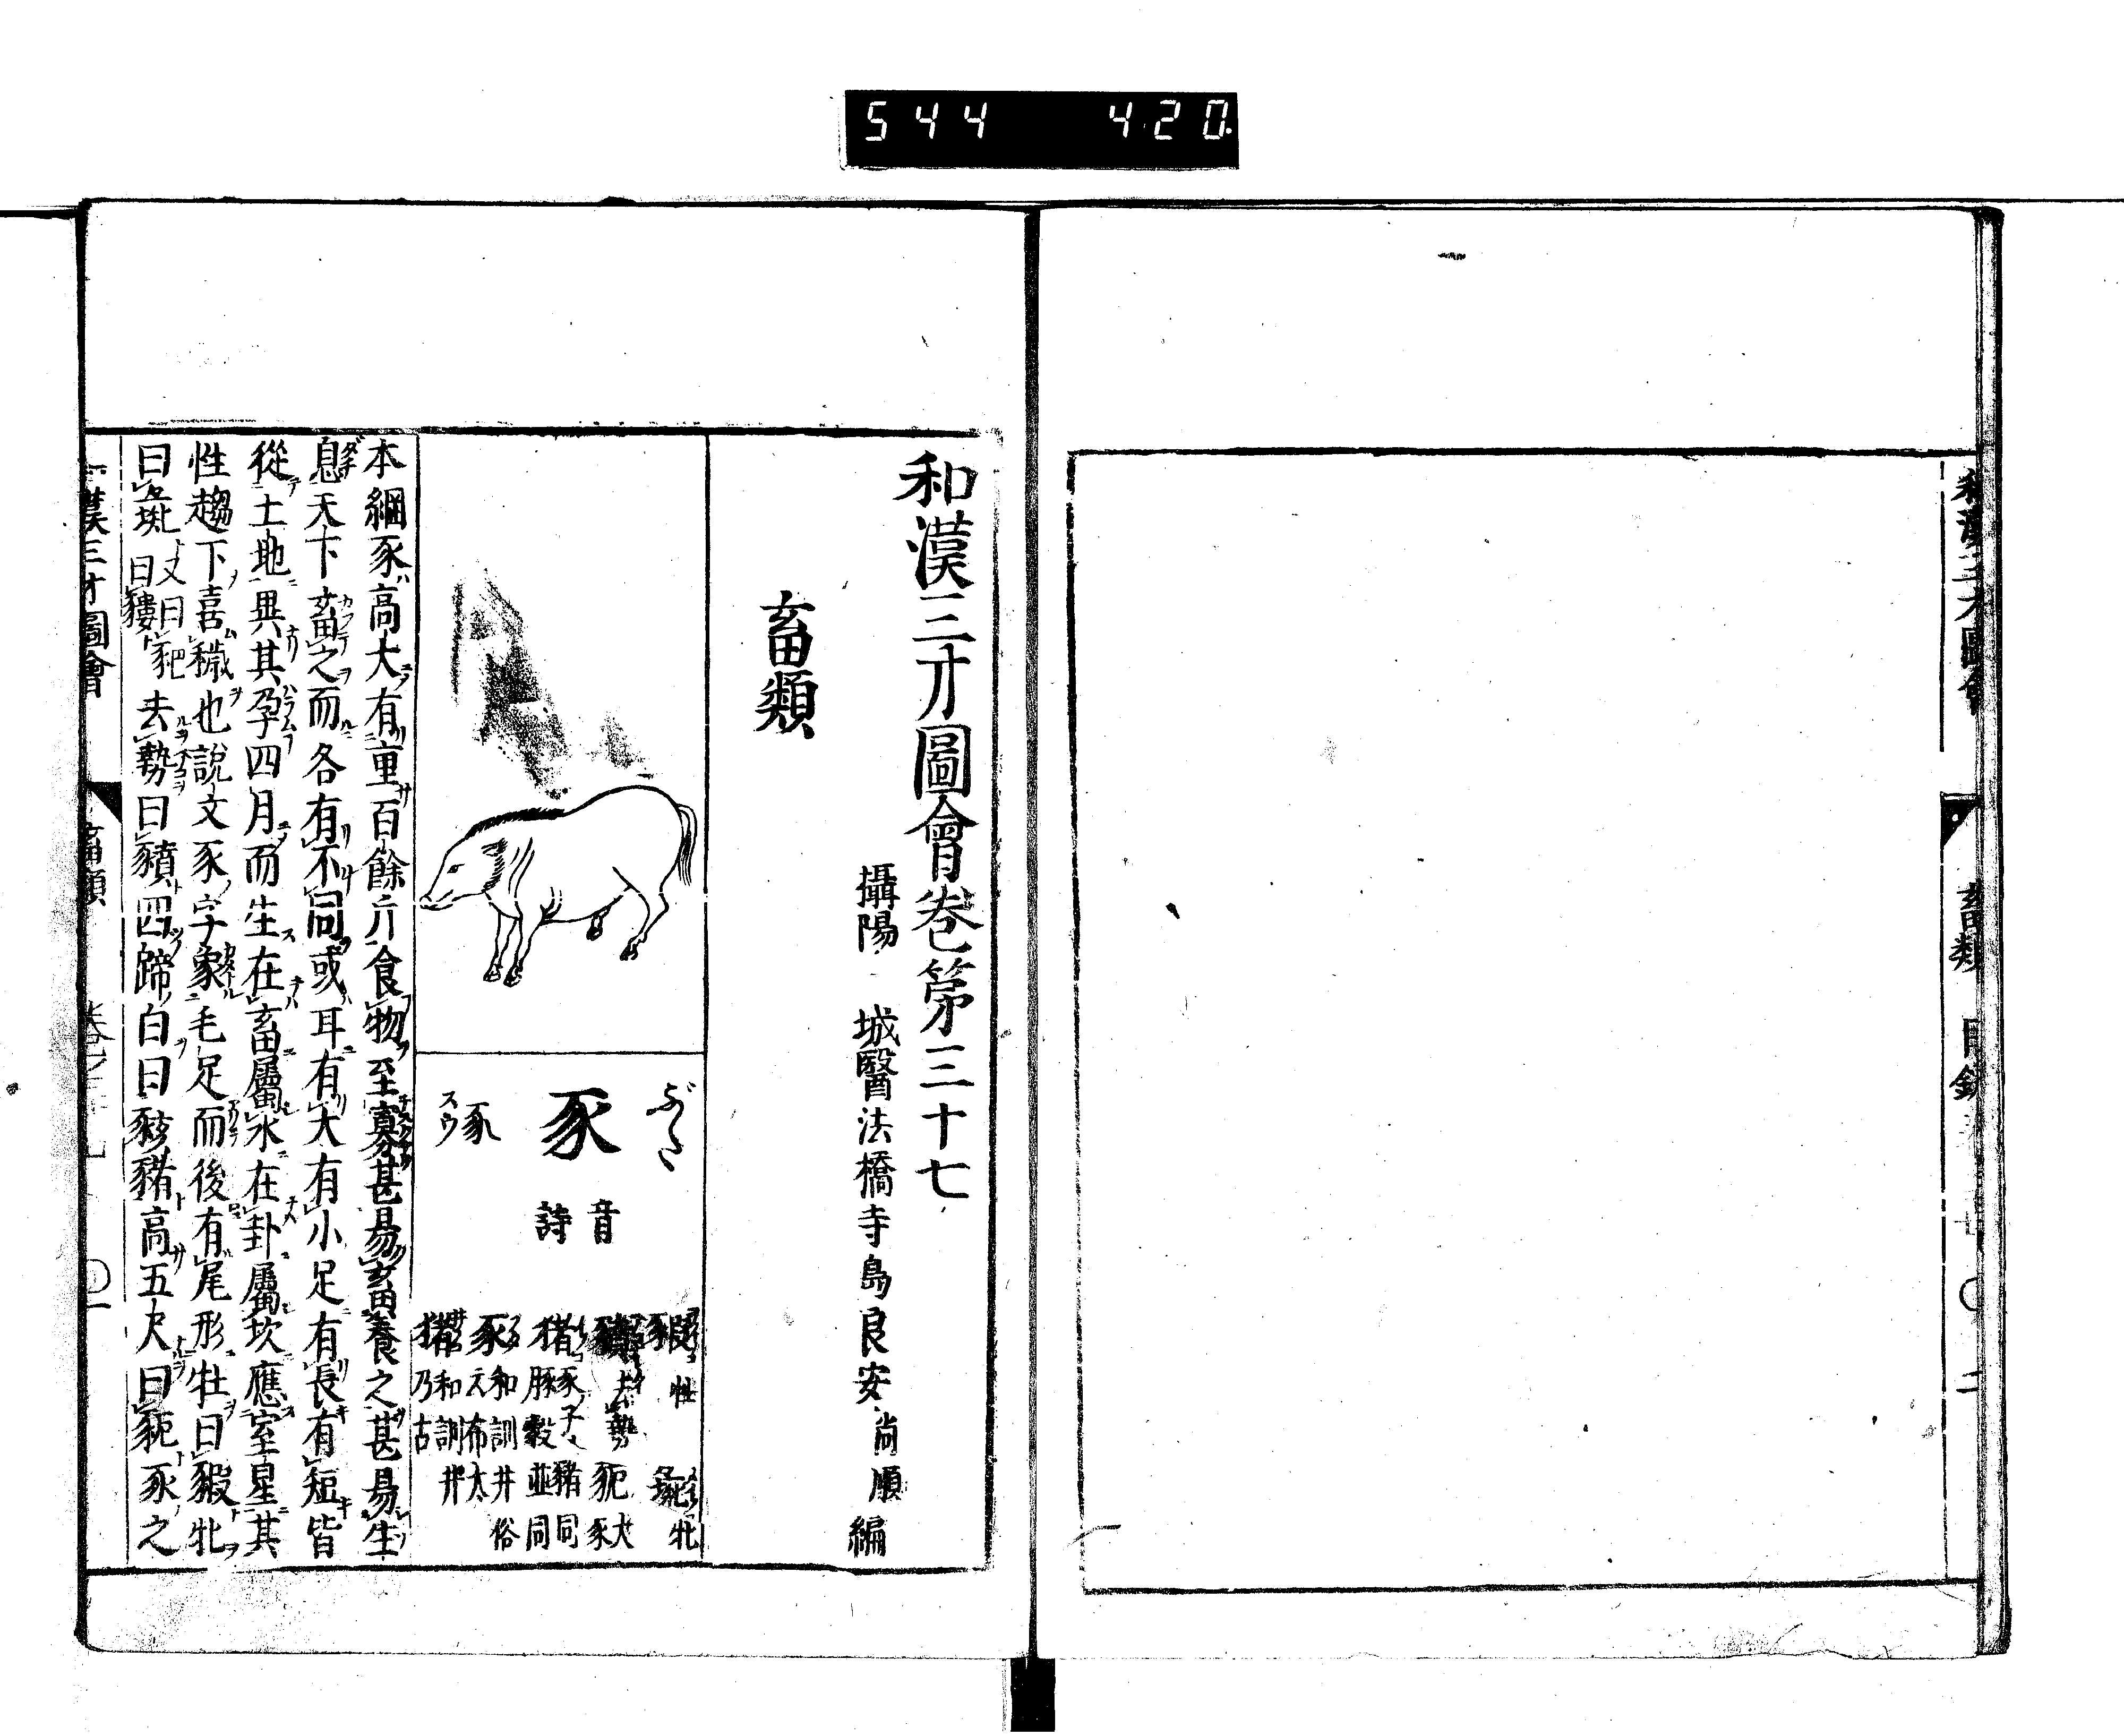 544 420
畜類
和漢三才圖會卷第三十七
攝陽 城醫法橋寺島良安尚順編
畜類
ぶた
豕
音詩
豕
スウ
豭 牡
豝 牝
豶 去勢
豟 大豕
猪 豕子
豬同
豚豰並同
豕 和訓井 俗云布太
猪 和訓井乃古
本綱豕高大有重百餘斤食物至寡甚易畜養之甚易生
息天下畜之而各有不同或耳有大有小足有長有短皆
從土地異其孕四月而生在畜屬水在卦屬坎應室星其
性趨下喜穢也說文豕字象毛足而後有尾形牡曰豭牝
曰彘又曰豝曰䝏去勢曰豶四蹄白曰豥豬高五尺曰豟豕之
漢三才圖會 畜類